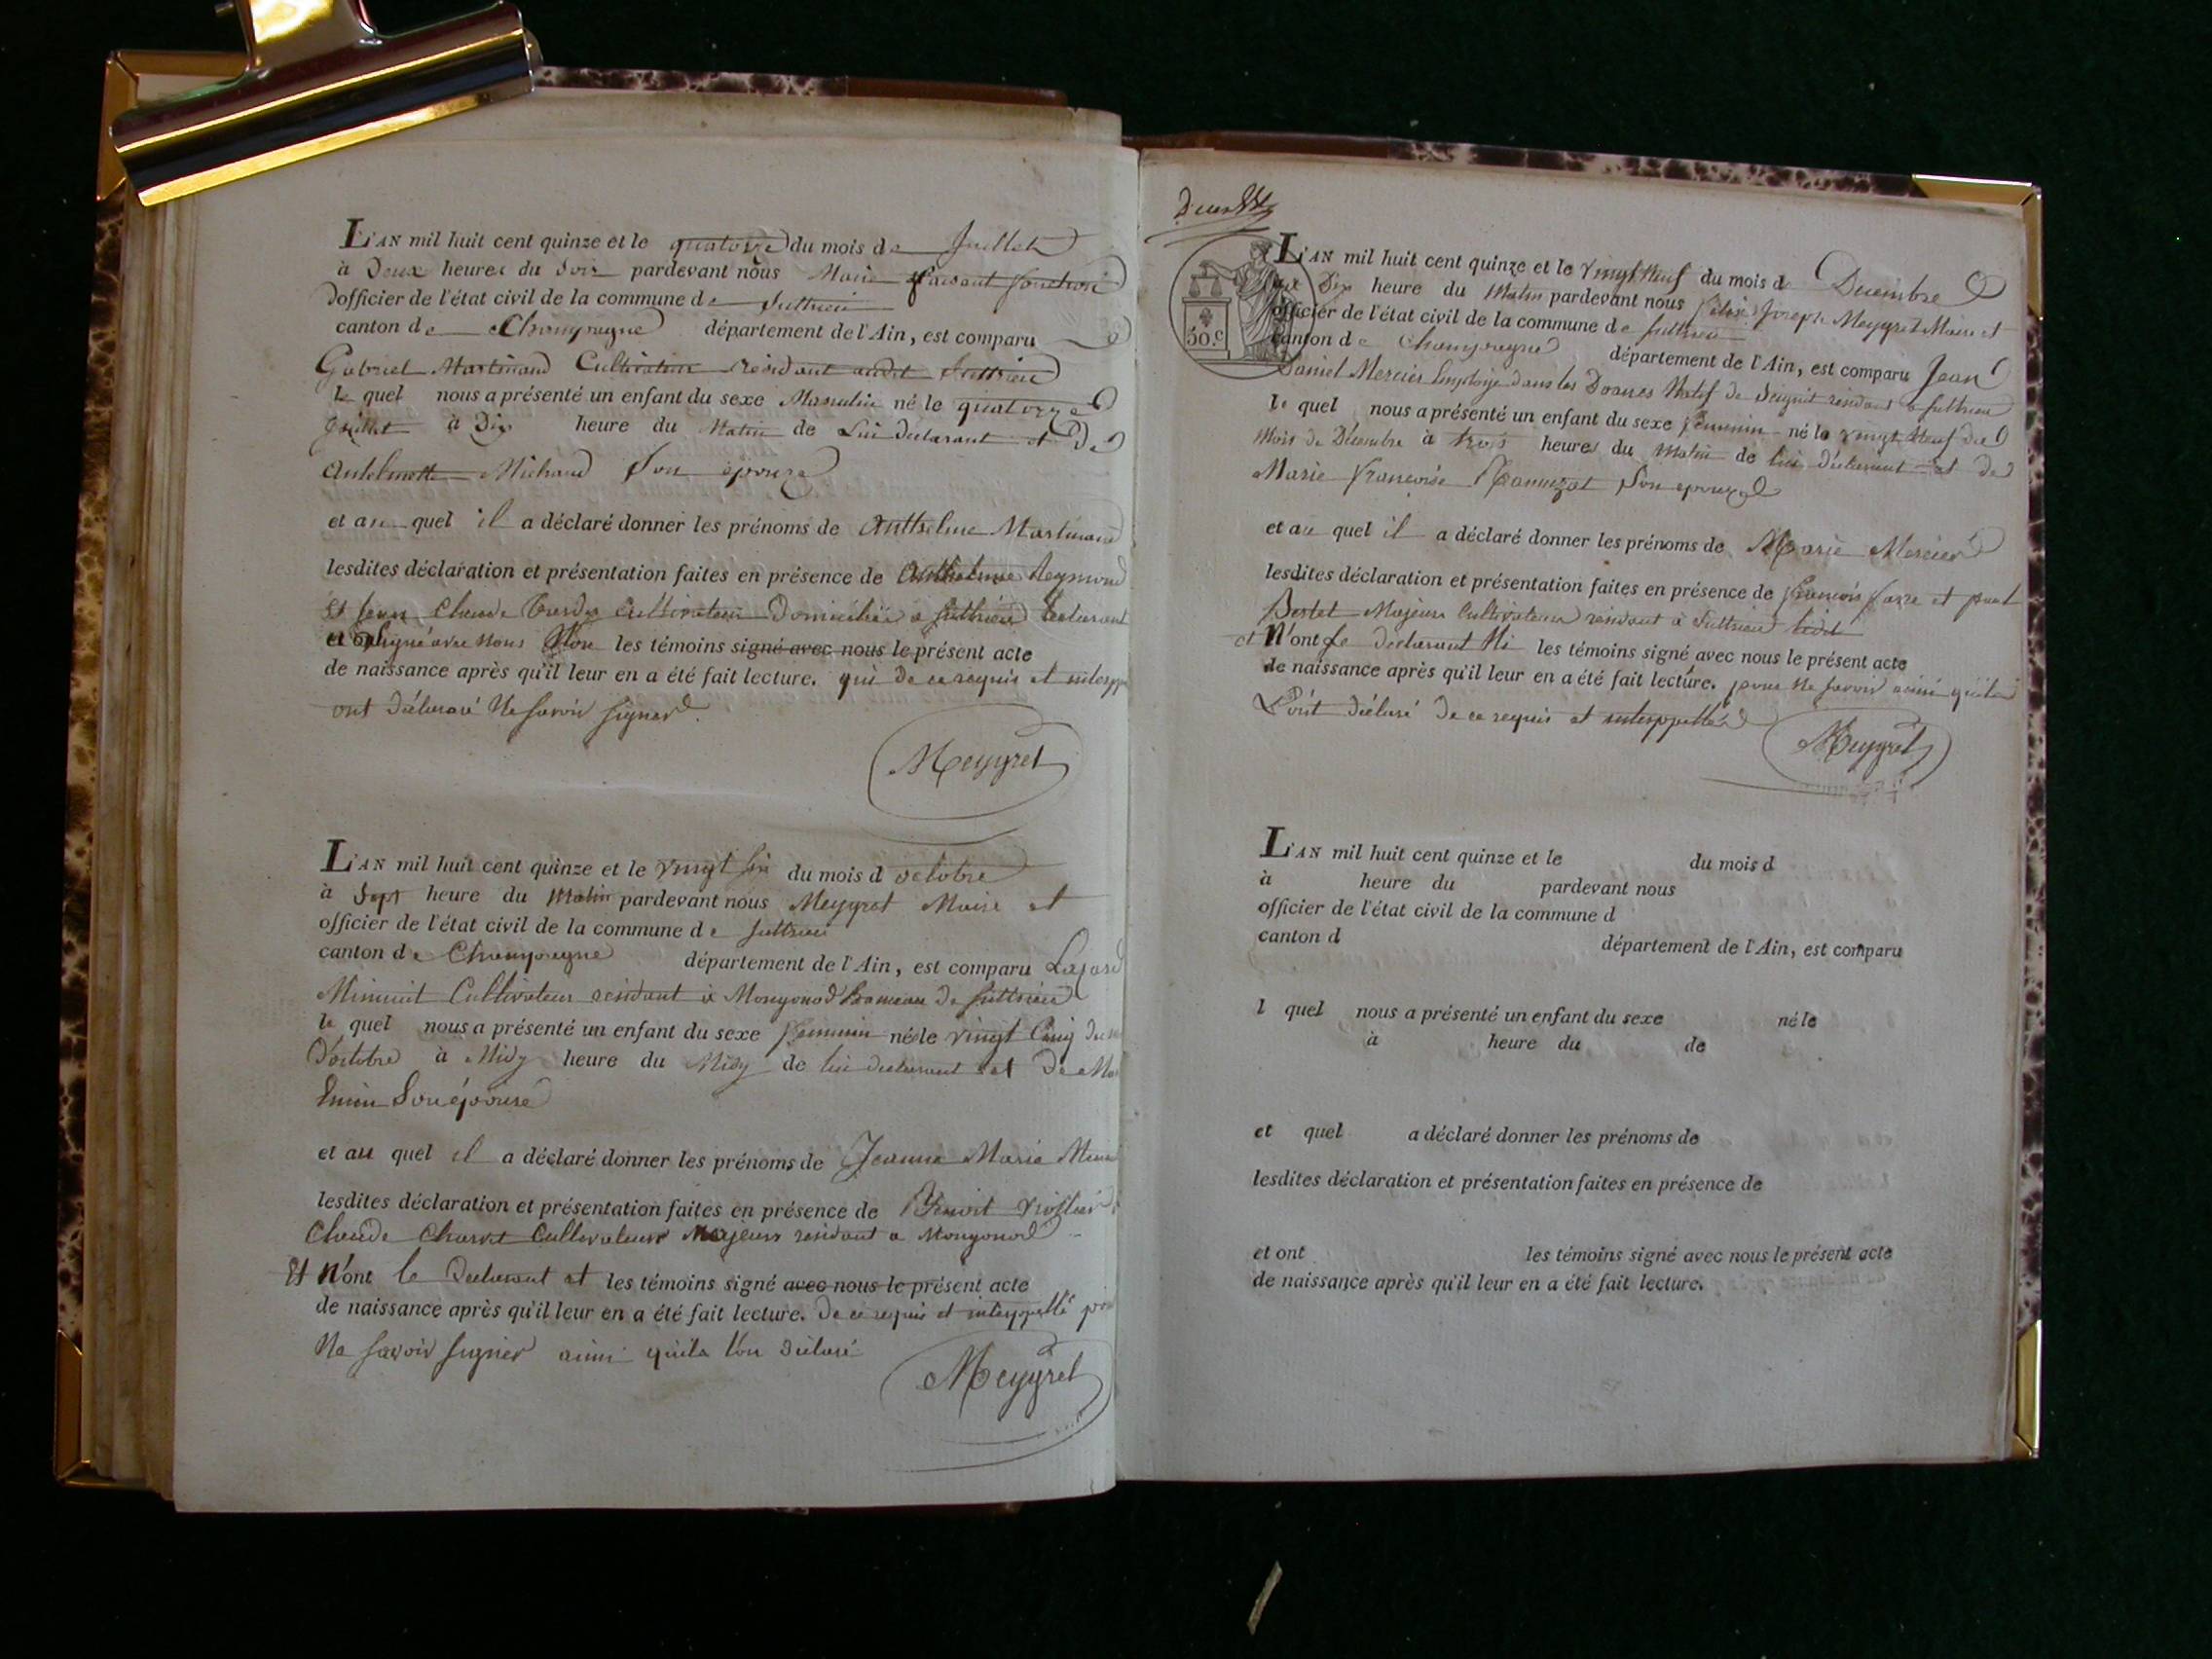 L'AN mil huit cent quinze et le quatorze du mois de Juillet
à Deux heures du Soir pardevant nous Maire faisant fonction
d'officier de l'état civil de la commune de Suttrieu
canton de Champagne département de l'Ain, est comparu
Gabriel Martinand Cultivateur residant audit Suttrieu
le quel nous a présenté un enfant du sexe Masculin né le quatorze
Juillet à Dix heure du Matin de Lui declarant et De
Antelmette Michaud Son épouze
et au quel il a déclaré donner les prénoms de Anthelme Martinand
lesdites déclaration et présentation faites en présence de Anthelme Reymond
Et Jean Claude Cultivateur Domicilié a Suttrieu declarant
et signé avec Nous Non les témoins signé avec nous le présent acte
de naissance après qu'il leur en a été fait lecture. qui de ce requis et
ont déclaré Ne Savoir Signer
Meygret
L'AN mil huit cent quinze et le vingt Six du mois d octobre
à Sept heure du Matin pardevant nous Meygret Maire et
officier de l'état civil de la commune de Suttrieu
canton de Champagne département de l'Ain, est comparu
Minuit Cultivateur residant à Mongonod hameau de Suttrieu
le quel nous a présenté un enfant du sexe femenin né le vingt Cinq du
D'octobre à Midy heure du Midy de lui declarant et De
Son épouse
et au quel il a déclaré donner les prénoms de Jeanne Marie
lesdites déclaration et présentation faites en présence de Benoit
Claude Charvet Cultivateurs Majeurs residant a Mongonod
Et N'ont le Declarant et les témoins signé avec nous le présent acte
de naissance après qu'il leur en a été fait lecture. De ce requis et interppellé
Ne Savoir Signer ainsi quils l'on déclaré
Meygret
50.c
L'AN mil huit cent quinze et le vingt Neuf du mois de Decembre
Dix heure du Matin pardevant nous Joseph Meygret Maire et
officier de l'état civil de la commune de Suttrieu
canton de Champagne département de l'Ain, est comparu Jean
Daniel Mercier Employé dans les Doanes Natif de residant a Suttrieu
le quel nous a présenté un enfant du sexe femenin né le vingt Neuf du
Mois de Décembre à trois heures du Matin de lui déclarant et de
Marie Francoise Son epouze
et au quel il a déclaré donner les prénoms de Marie Mercier
lesdites déclaration et présentation faites en présence de François et
Majeurs Cultivateurs residant à Suttrieu
et N'ont Le declarant Ni les témoins signé avec nous le présent acte
de naissance après qu'il leur en a été fait lecture. pour Ne Savoir ainsi quils
L'ont déclaré De ce requis et interppellé
Meygret
L'AN mil huit cent quinze et le du mois d
à heure du pardevant nous
officier de l'état civil de la commune d
canton d département de l'Ain, est comparu
l quel nous a présenté un enfant du sexe né le
à heure du de
et quel a déclaré donner les prénoms de
lesdites déclaration et présentation faites en présence de
et ont les témoins signé avec nous le présent acte
de naissance après qu'il leur en a été fait lecture.